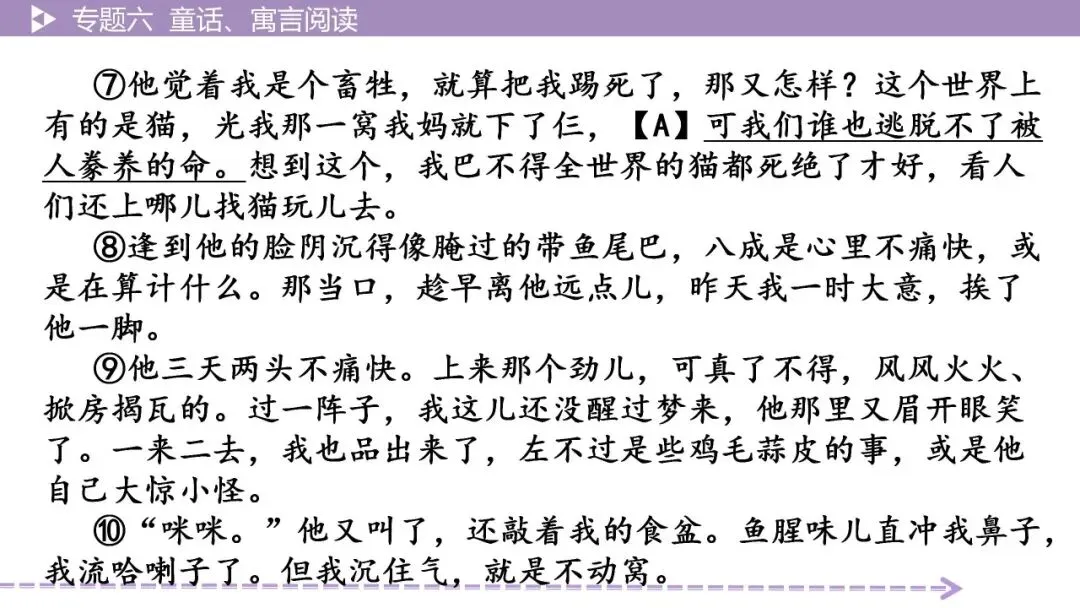 专题六 童话、寓言阅读
⑦他觉着我是个畜牲，就算把我踢死了，那又怎样？这个世界上
有的是猫，光我那一窝我妈就下了仨，【A】可我们谁也逃脱不了被
人豢养的命。想到这个，我巴不得全世界的猫都死绝了才好，看人
们还上哪儿找猫玩儿去。
⑧逢到他的脸阴沉得像腌过的带鱼尾巴，八成是心里不痛快，或
是在算计什么。那当口，趁早离他远点儿，昨天我一时大意，挨了
他一脚。
⑨他三天两头不痛快。上来那个劲儿，可真了不得，风风火火、
掀房揭瓦的。过一阵子，我这儿还没醒过梦来，他那里又眉开眼笑
了。一来二去，我也品出来了，左不过是些鸡毛蒜皮的事，或是他
自己大惊小怪。
⑩“咪咪。”他又叫了，还敲着我的食盆。鱼腥味儿直冲我鼻子，
我流哈喇子了。但我沉住气，就是不动窝。